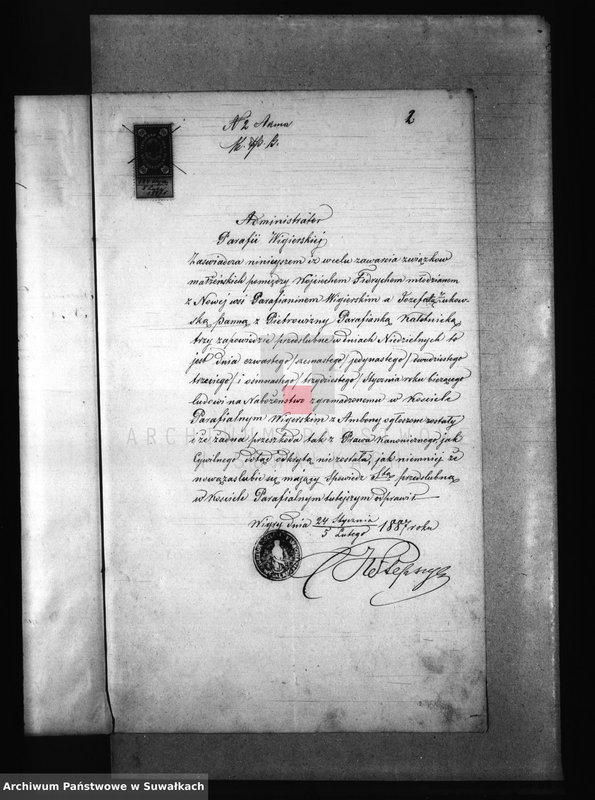 N 2 Akma
2
Administrator
Parafii Wigierskiéj
Zaświadcza niniejszem iż w celu zawarcia związków
małżeńskich pomiędzy Wojciechem Fidrychem młodzianem
z Nowej wsi Parafianinem Wigierskim a Józefatą Żukow-
ską panną z Pietrowizny Parafianką Kaletnicką
trzy zapowiedzie przedślubne w dniach Niedzielnych to
jest dnia czwartego /szesnastego/ jedynastego /dwudziestego
trzeciego/ i osmnastego /trzydziestego/ Stycznia roku bieżącego
ludowi na Nabożeństwo zgromadzonemu w Kościele
Parafialnym Wigierskim z Ambony ogłoszone zostały
i że żadna przeszkoda tak z Prawa Kanonicznego, jak
Cywilnego dotąd odkrytą nie została, jak niemniéj że
nowozaślubić się mający Spowiedź Stą przedślubną
w Kościele Parafialnym tutejszym odprawił
Wigry dnia 24 Stycznia / 5 Lutego 1887 roku
ARCHIWUM
Archiwum Państwowe w Suwałkach